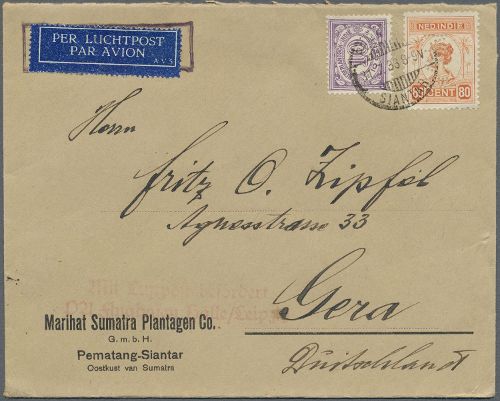 PER LUCHTPOST
PAR AVION
AVS
NED. INDIE
80 CENT 80
SIANTAR
Herrn
Fritz O. Zipfel
Agnesstrasse 33
Gera
Duitschland
Mit Luftpost befördert
Halle/Leipzig
Marihat Sumatra Plantagen Co.
G. m. b. H.
Pematang-Siantar
Oostkust van Sumatra